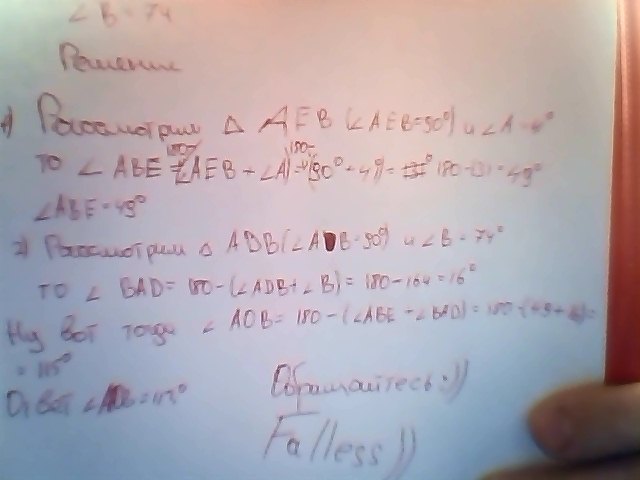 ∠ B = 74
Решение
1) Рассмотрим Δ AEB (∠AEB=90°) и ∠A=4°
то ∠ ABE = 180-(∠AEB + ∠A) = 180-(90°+41) = 180-131=49°
∠ABE=49°
2) Рассмотрим Δ ADB (∠ADB=90°) и ∠B=74°
то ∠ BAD= 180-(∠ADB+∠B)= 180-164=16°
Ну вот тогда ∠ AOB= 180-(∠ABE+∠BAD)= 180-(49+16)=
= 115°
Ответ ∠AOB=115°
Обращайтесь:))
Falless))